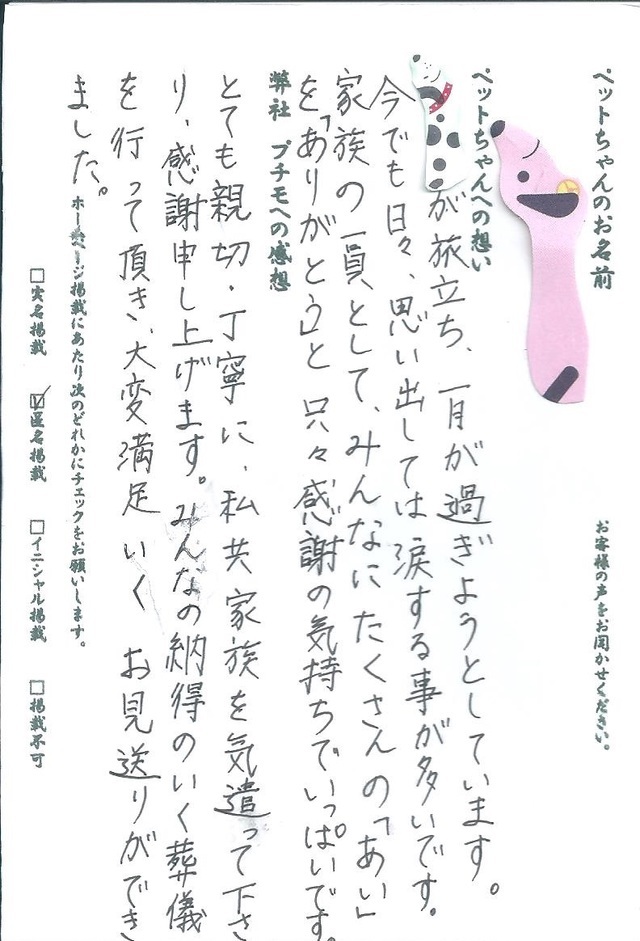 ペットちゃんのお名前
お客様の声をお聞かせください。
ペットちゃんへの想い
が旅立ち、一月が過ぎようとしています。
今でも日々、思い出しては涙する事が多いです。
家族の一員として、みんなにたくさんの「あい」
を「ありがとう」と只々感謝の気持ちでいっぱいです。
弊社 プチモへの感想
とても親切・丁寧に、私共家族を気遣って下さ
り、感謝申し上げます。みんなの納得のいく葬儀
を行って頂き、大変満足いくお見送りができ
ました。
ホームページ掲載にあたり次のどれかにチェックをお願いします。
□実名掲載 ☑匿名掲載 □イニシャル掲載 □掲載不可